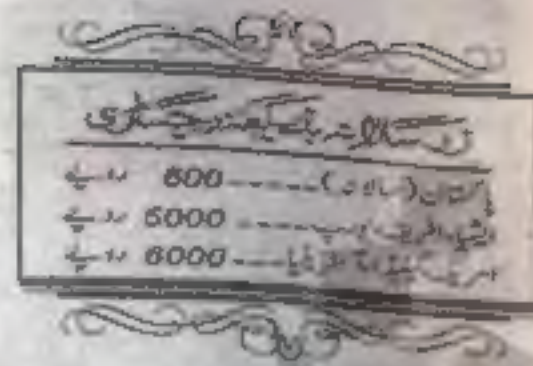 زر سالانہ بذریعہ رجسٹری
پاکستان (سالانہ) ----- 600 روپے
ایشیا، افریقہ، یورپ ---- 5000 روپے
امریکہ، کینیڈا، آسٹریلیا ---- 6000 روپے